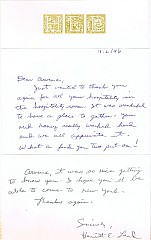 Dear
Just wanted to thank you
again for all your hospitality in
the hospitality room. It was wonderful
to have a place to gather. You
and really worked hard
and we all appreciate it.
What a fine you two put on!
it was so nice getting
to know you. I hope you'll be
able to come to New York.
Thanks again.
Sincerely,
Harriet E.